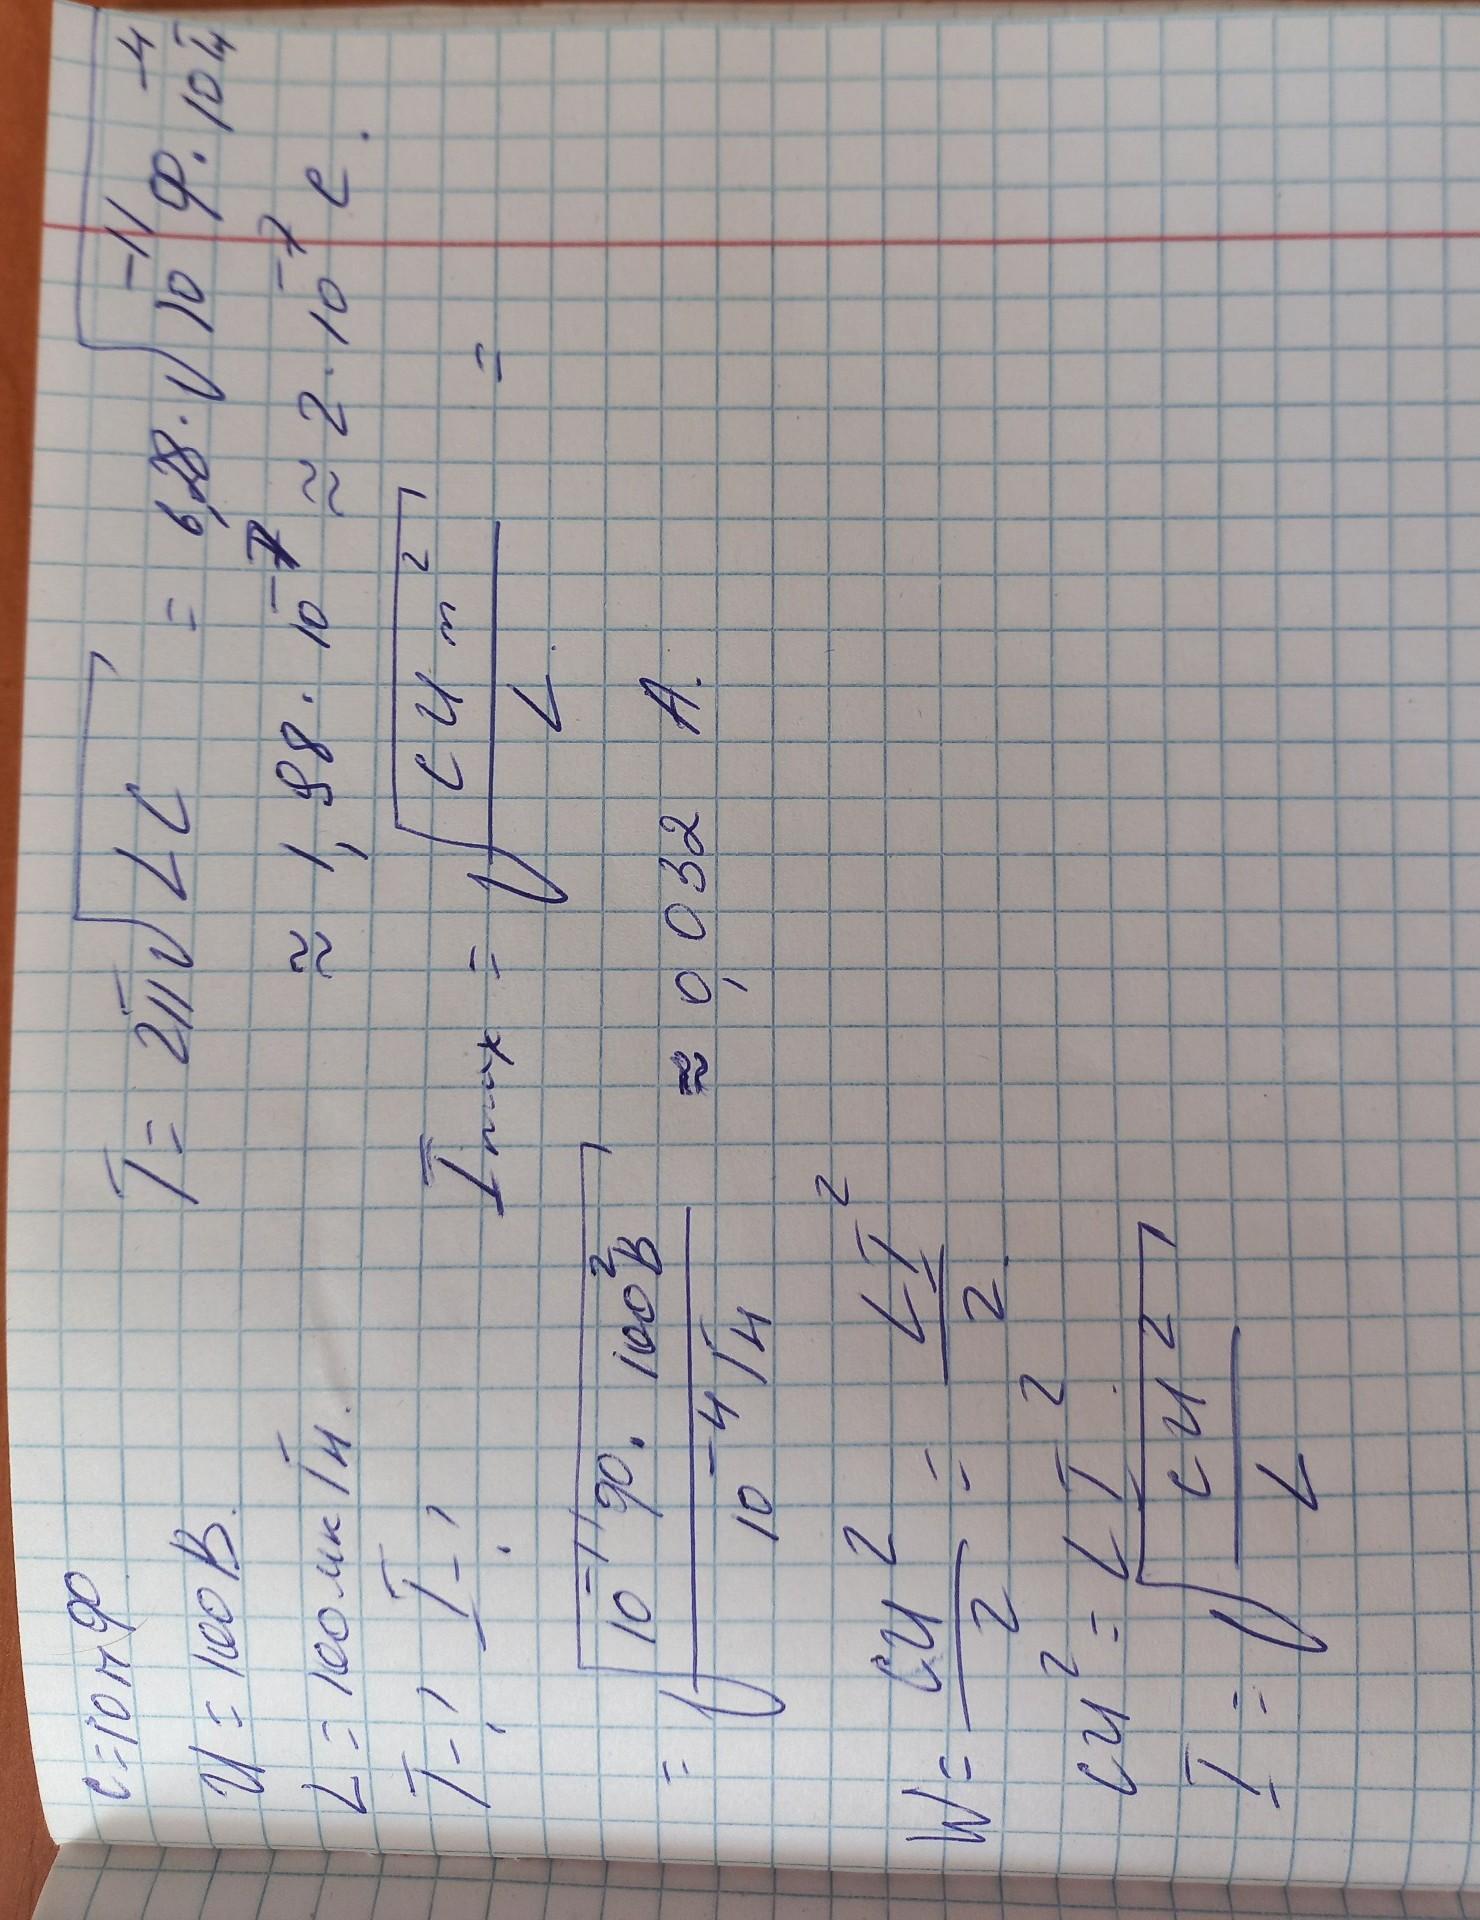 C = 10 пФ
U = 100 В.
L = 100 мкГн.
T - ? I - ?
T = 2π√LC = 6,28 · √10⁻¹¹ Ф · 10⁻⁴ Гн
≈ 1,98 · 10⁻⁷ ≈ 2 · 10⁻⁷ с.
Imax = √(CUm²/L) =
= √(10⁻¹¹ Ф · 100² В/10⁻⁴ Гн) ≈ 0,032 А.
W = CU²/2 = LI²/2
CU² = LI².
I = √(CU²/L)